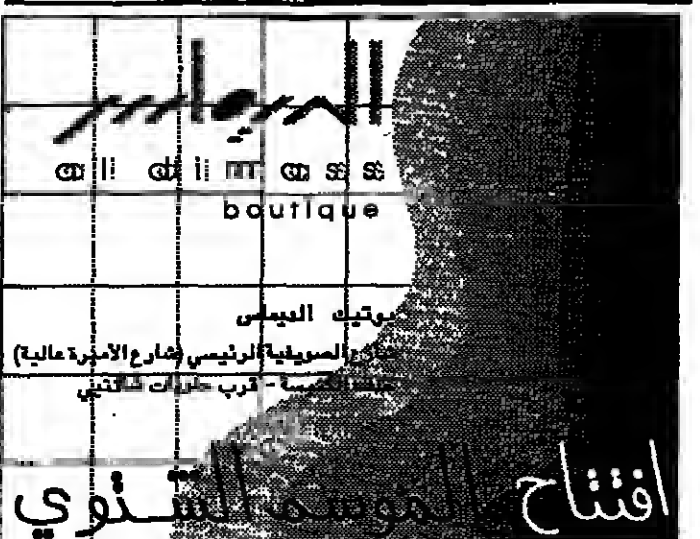 الديماس
al dimass
boutique
بوتيك الديماس
شارع الصويفية الرئيسي (شارع الأميرة عالية)
خلف الكنيسة - قرب حلويات
افتتاح الموسم الشتوي